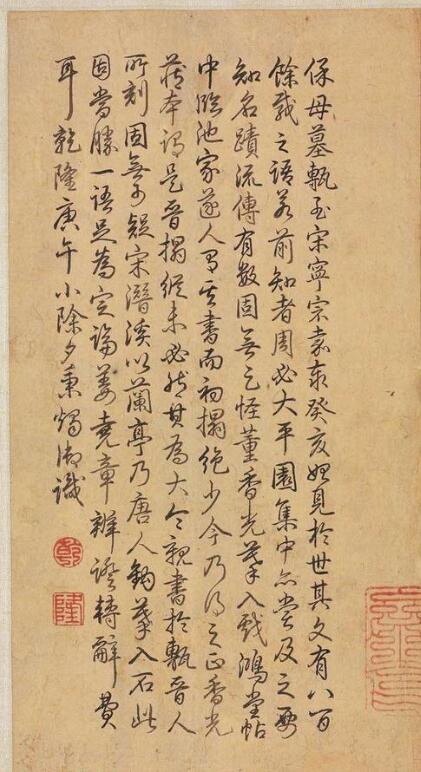 保母墓甎至宋寧宗嘉泰癸亥始見於世其文有八百
餘載之語若前知者周必大平園集中亦嘗及之要
知名蹟流傳有數固無足怪董香光摹入戲鴻堂帖
中臨池家遂人其書而初搨絕少今乃得之正香光
藏本謂是晉搨縱未必然其為大令親書於甎晉人
所刻固無可疑宋潛溪以蘭亭乃唐人鉤摹入石此
固當勝一語足為定論姜堯章辨證轉辭費
耳乾隆庚午小除夕秉燭御識
乾
隆